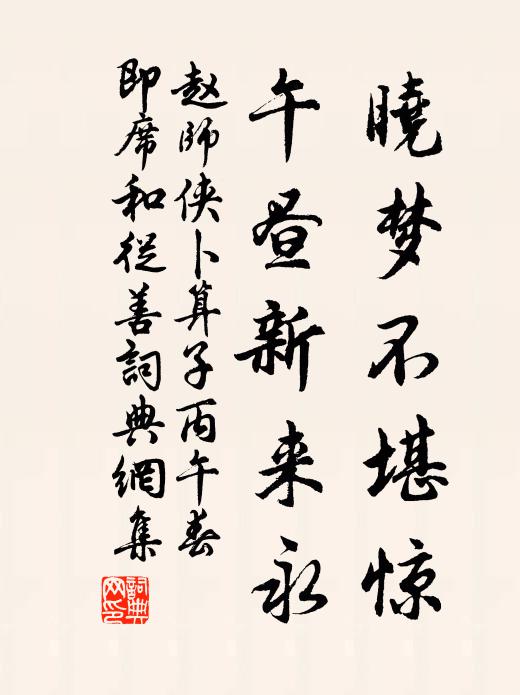 曉梦不堪惊
午昼新来永
赵師侠卜算子丙午春
即席和從善詞典網集
詞典網印